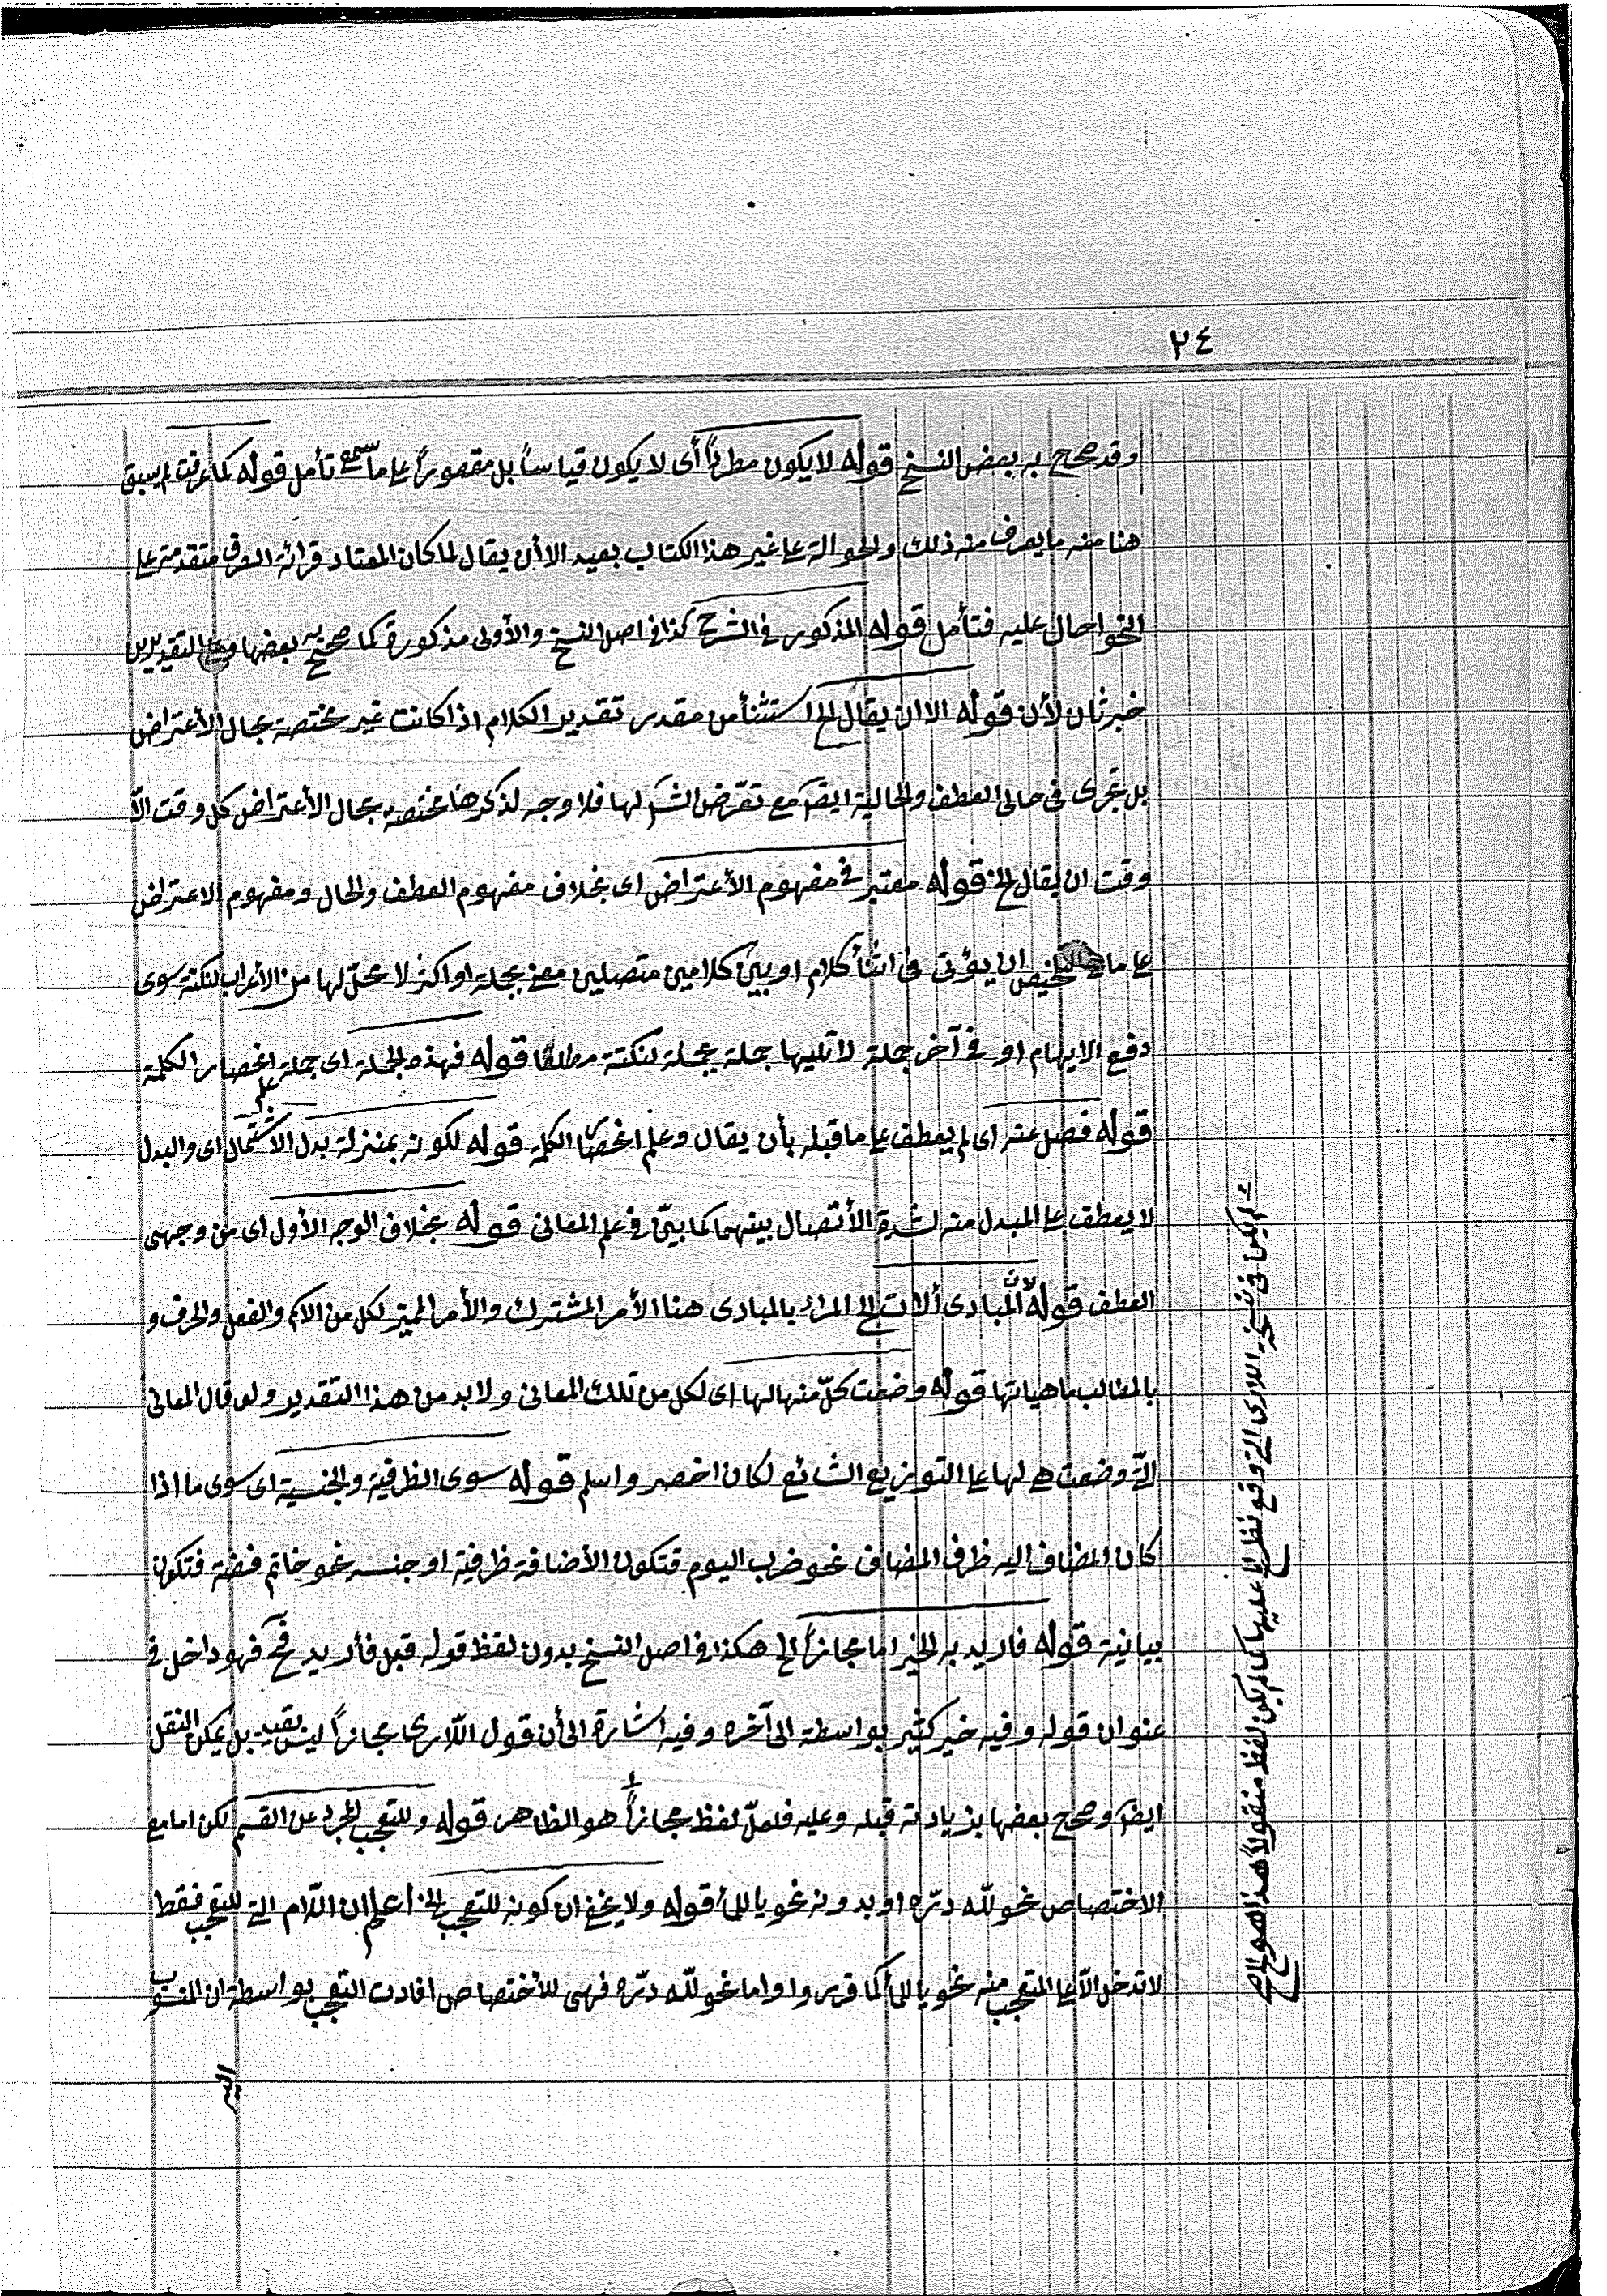 ٢٤
وقد صحح به بعض النسخ قوله لا يكون مطرداً أى لا يكون قياساً بل مقصوراً عا ما سمع تأمل قوله كما عرفت لم يسبق
هنا منه ما يعرف منه ذلك والحوالة عا غير هذا الكتاب بعيد الا أن يقال لما كان المعتاد قرائة الصرف متقدمة على
النحو احال عليه فتأمل قوله المذكور فى الشرح كذا فى اصل النسخ والأولى مذكورة كما صحح به بعضها وعلى التقديرين
خبر ثان لأن قوله الا ان يقال الخ استثنأ من مقدر تقدير الكلام اذا كانت غير مختصة بحال الأعتراض
بل تجرى فى حالى العطف والحالية ايضً مع تعرض الشم لها فلا وجه لذكرها مختصة بحال الأعتراض كل وقت الّا
وقت ان يقال الخ قوله معتبر فى مفهوم الأعتراض اى بخلاف مفهوم العطف والحال ومفهوم الاعتراض
عا ما فى التلخيص ان يؤتى فى اثنأ كلام او بين كلامين متصلين معنى بجملة او اكثر لا محلّ لها من الأعراب لنكتة سوى
دفع الايهام او فى آخر جملة لا تليها جملة بجملة لنكتة مطلقا قوله فهذه الجملة اى جملة علم انحصار الكلمة
قوله فصل عنه اى لم يعطف عا ما قبله بأن يقال وعلم انحصار الكلمة قوله لكونه بمنزلة بدل الاشتمال اى والبدل
لا يعطف عا المبدل منه لشدة الأتصال بينهما كما بيّن فى علم المعانى قوله بخلاف الوجه الأول اى من وجهى
العطف قوله لأنّ المبادى ألات الخ المراد بالمبادى هنا الأمر المشترك والأمر المميز لكل من الاسم والفعل والحرف و
بالمطالب ماهياتها قوله وضعت كلّ منها لها اى لكل من تلك المعانى ولا بد من هذا التقدير ولو قال المعانى
التى وضعت هى لها عا التوزيع الشائع لكان اخصر واسلم قوله سوى الظرفية والجنسية اى سوى ما اذا
كان المضاف اليه ظرف المضاف نحو ضرب اليوم فتكون الأضافة ظرفية او جنسه نحو خاتم فضة فتكون
بيانية قوله فاريد به الخير اما مجازاً الخ هكذا فى اصل النسخ بدون لفظ قوله قبل فأريد فح فهو داخل فى
عنوان قوله وفيه خير كثير بواسطة الى آخره وفيه اشارة الى أن قول اللارى مجازاً ليس بقيد بل يمكن النقل
ايضً وصحح بعضها بزيادته قبله وعليه فلعلّ لفظ مجازاً هو الظاهر قوله وللتعجب المجرد عن القسم لكن اما مع
الاختصاص نحو لله درّه او بدونه نحو يا للمأ قوله ولا يخفى ان كونه للتعجب الخ اعلم ان اللّام التى للتعجب فقط
لا تدخل الّا عا المتعجب منه نحو يا للمأ كما قرروا واما نحو لله درّه فهى للأختصاص افادت التعجب بواسطة ان المنسوب
اليه